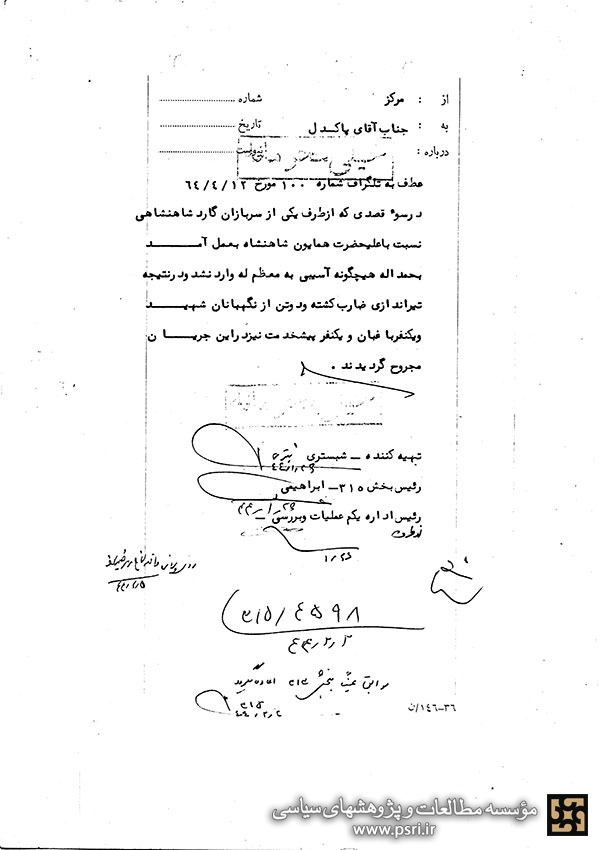 از : مرکز شماره ........................
به : جناب آقای پاکدل تاریخ ........................
درباره : پیوست
عطف به تلگراف شماره ۱۰۰ مورخ ۶۴/۴/۱۲
در سوء قصدی که از طرف یکی از سربازان گارد شاهنشاهی
نسبت باعلیحضرت همایون شاهنشاه بعمل آمــــــد
بحمد اله هیچگونه آسیبی به معظم له وارد نشد و در نتیجه
تیراندازی ضارب کشته و دو تن از نگهبانان شهیــــد
و یکنفر باغبان و یکنفر پیشخدمت نیز در این جریــان
مجروح گردیدند .
تهیه کننده - شبستری
رئیس بخش ۳۱۵ - ابراهیمی
رئیس اداره یکم عملیات و بررسی -
۱/۲۶
۳۱۵/۴۵۹۸
۴۴/۲/۲
۳۱۵
۴۴/۲/۲
۱۴۶-۳۶/ن
مؤسسه مطالعات و پژوهشهای سیاسی
www.psri.ir